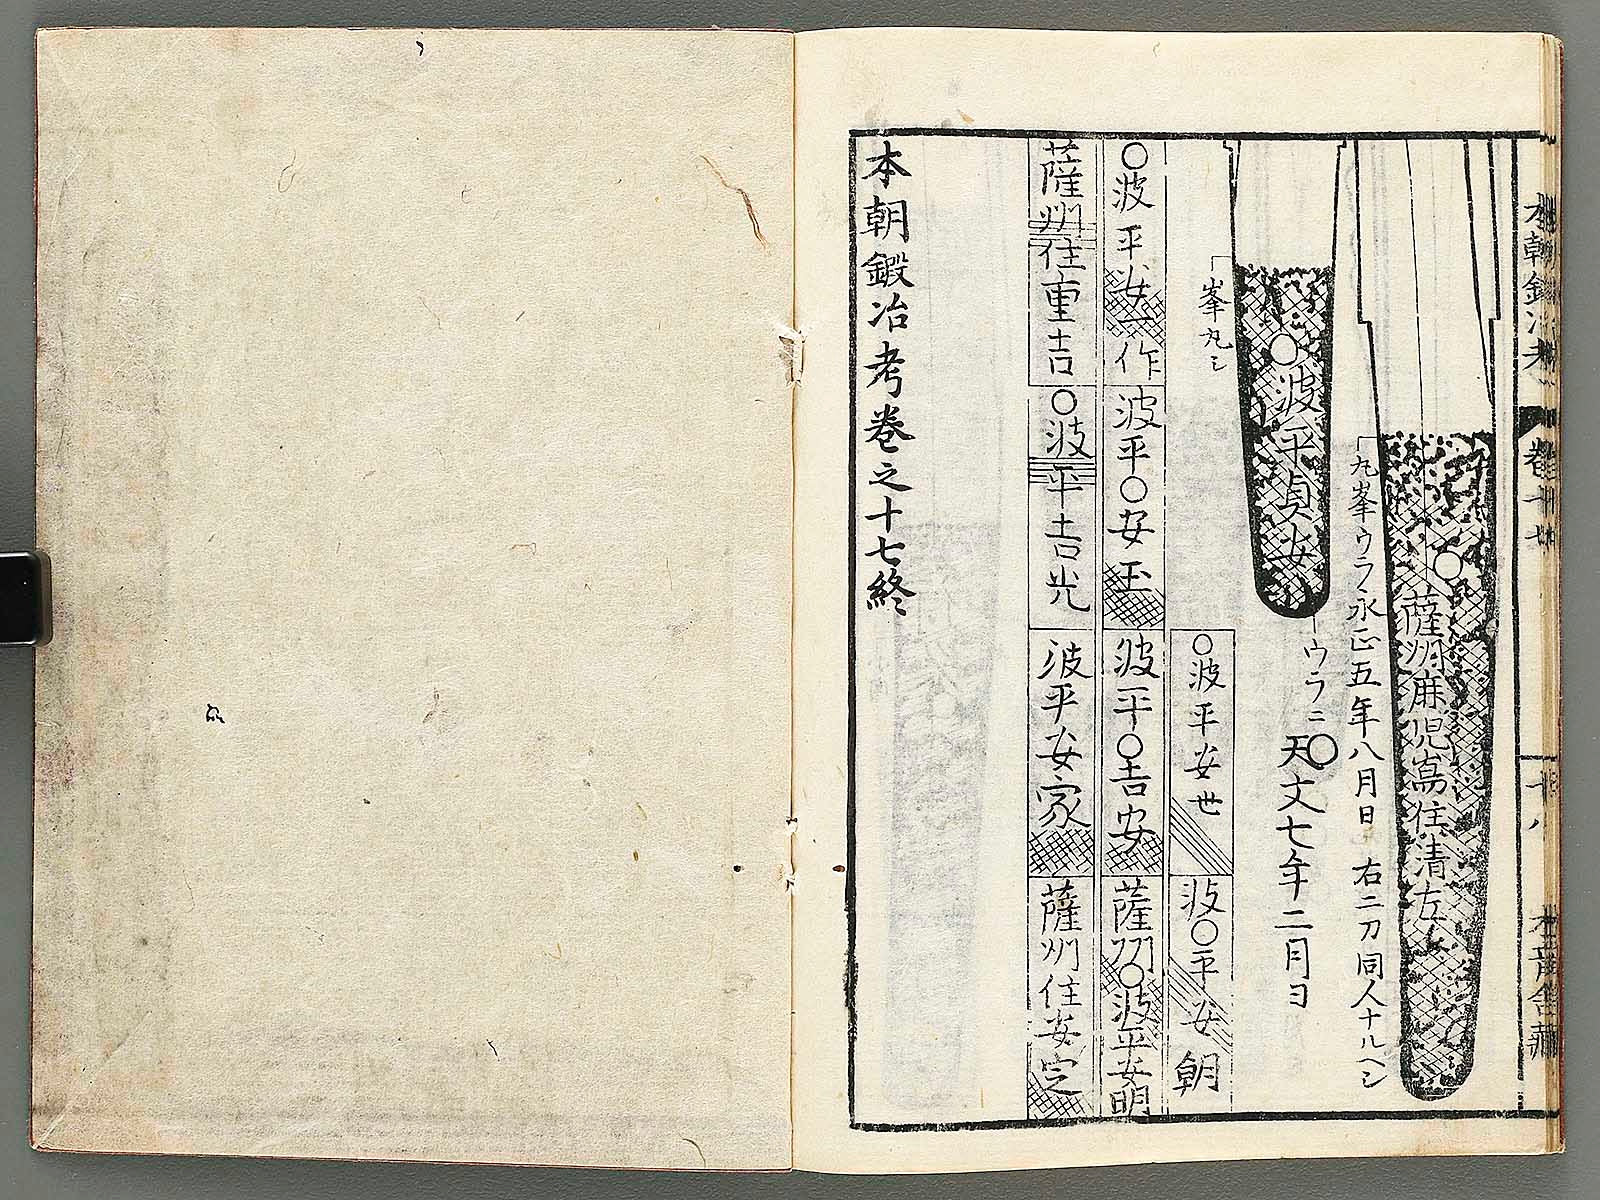 薩州麻児嶌住清左
「丸峯ウラノ永正五年八月日 右二刀同人ナルヘシ
○波平貞安
「ウラニ天文七年二月日
「峯丸シ
○波平安世
波○平安朝
○波平安作
波平○安玉
波平○吉安
薩州○波平安明
薩州住重吉
○波平吉光
波平安家
薩州住安定
本朝鍛冶考巻之十七終